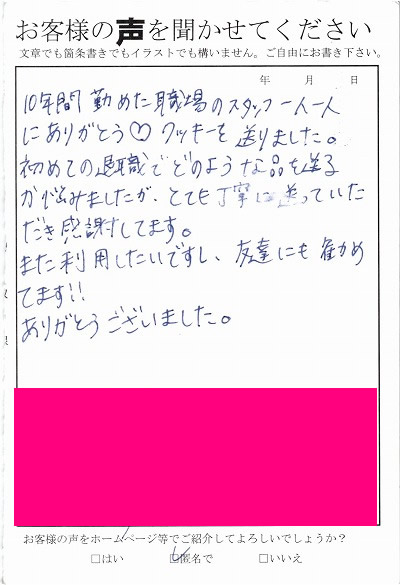 お客様の声を聞かせてください
文章でも箇条書きでもイラストでも構いません。ご自由にお書き下さい。
年 月 日
10年間勤めた職場のスタッフ一人一人
にありがとう♡クッキーを送りました。
初めての退職でどのような品を送る
か悩みましたが、とても丁寧に送っていた
だき感謝してます。
また利用したいですし、友達にも勧め
てます!!
ありがとうございました。
お客様の声をホームページ等でご紹介してよろしいでしょうか?
□はい ☑匿名で □いいえ